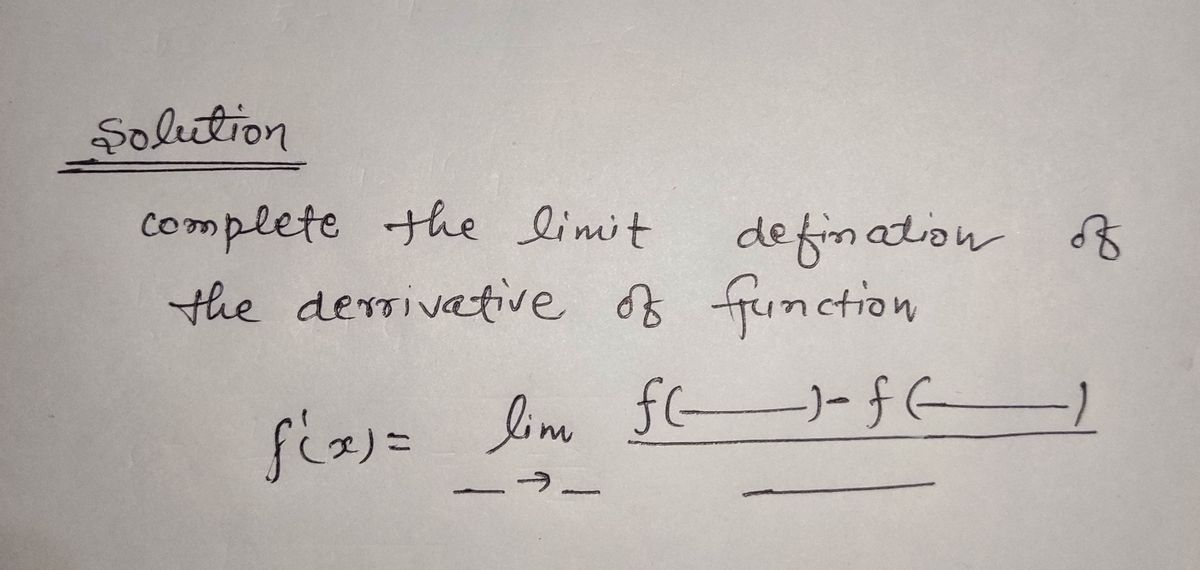 Solution
complete the limit defination of
the derrivative of function
f'(x) = lim f(___) - f(___)
_ → _ ___